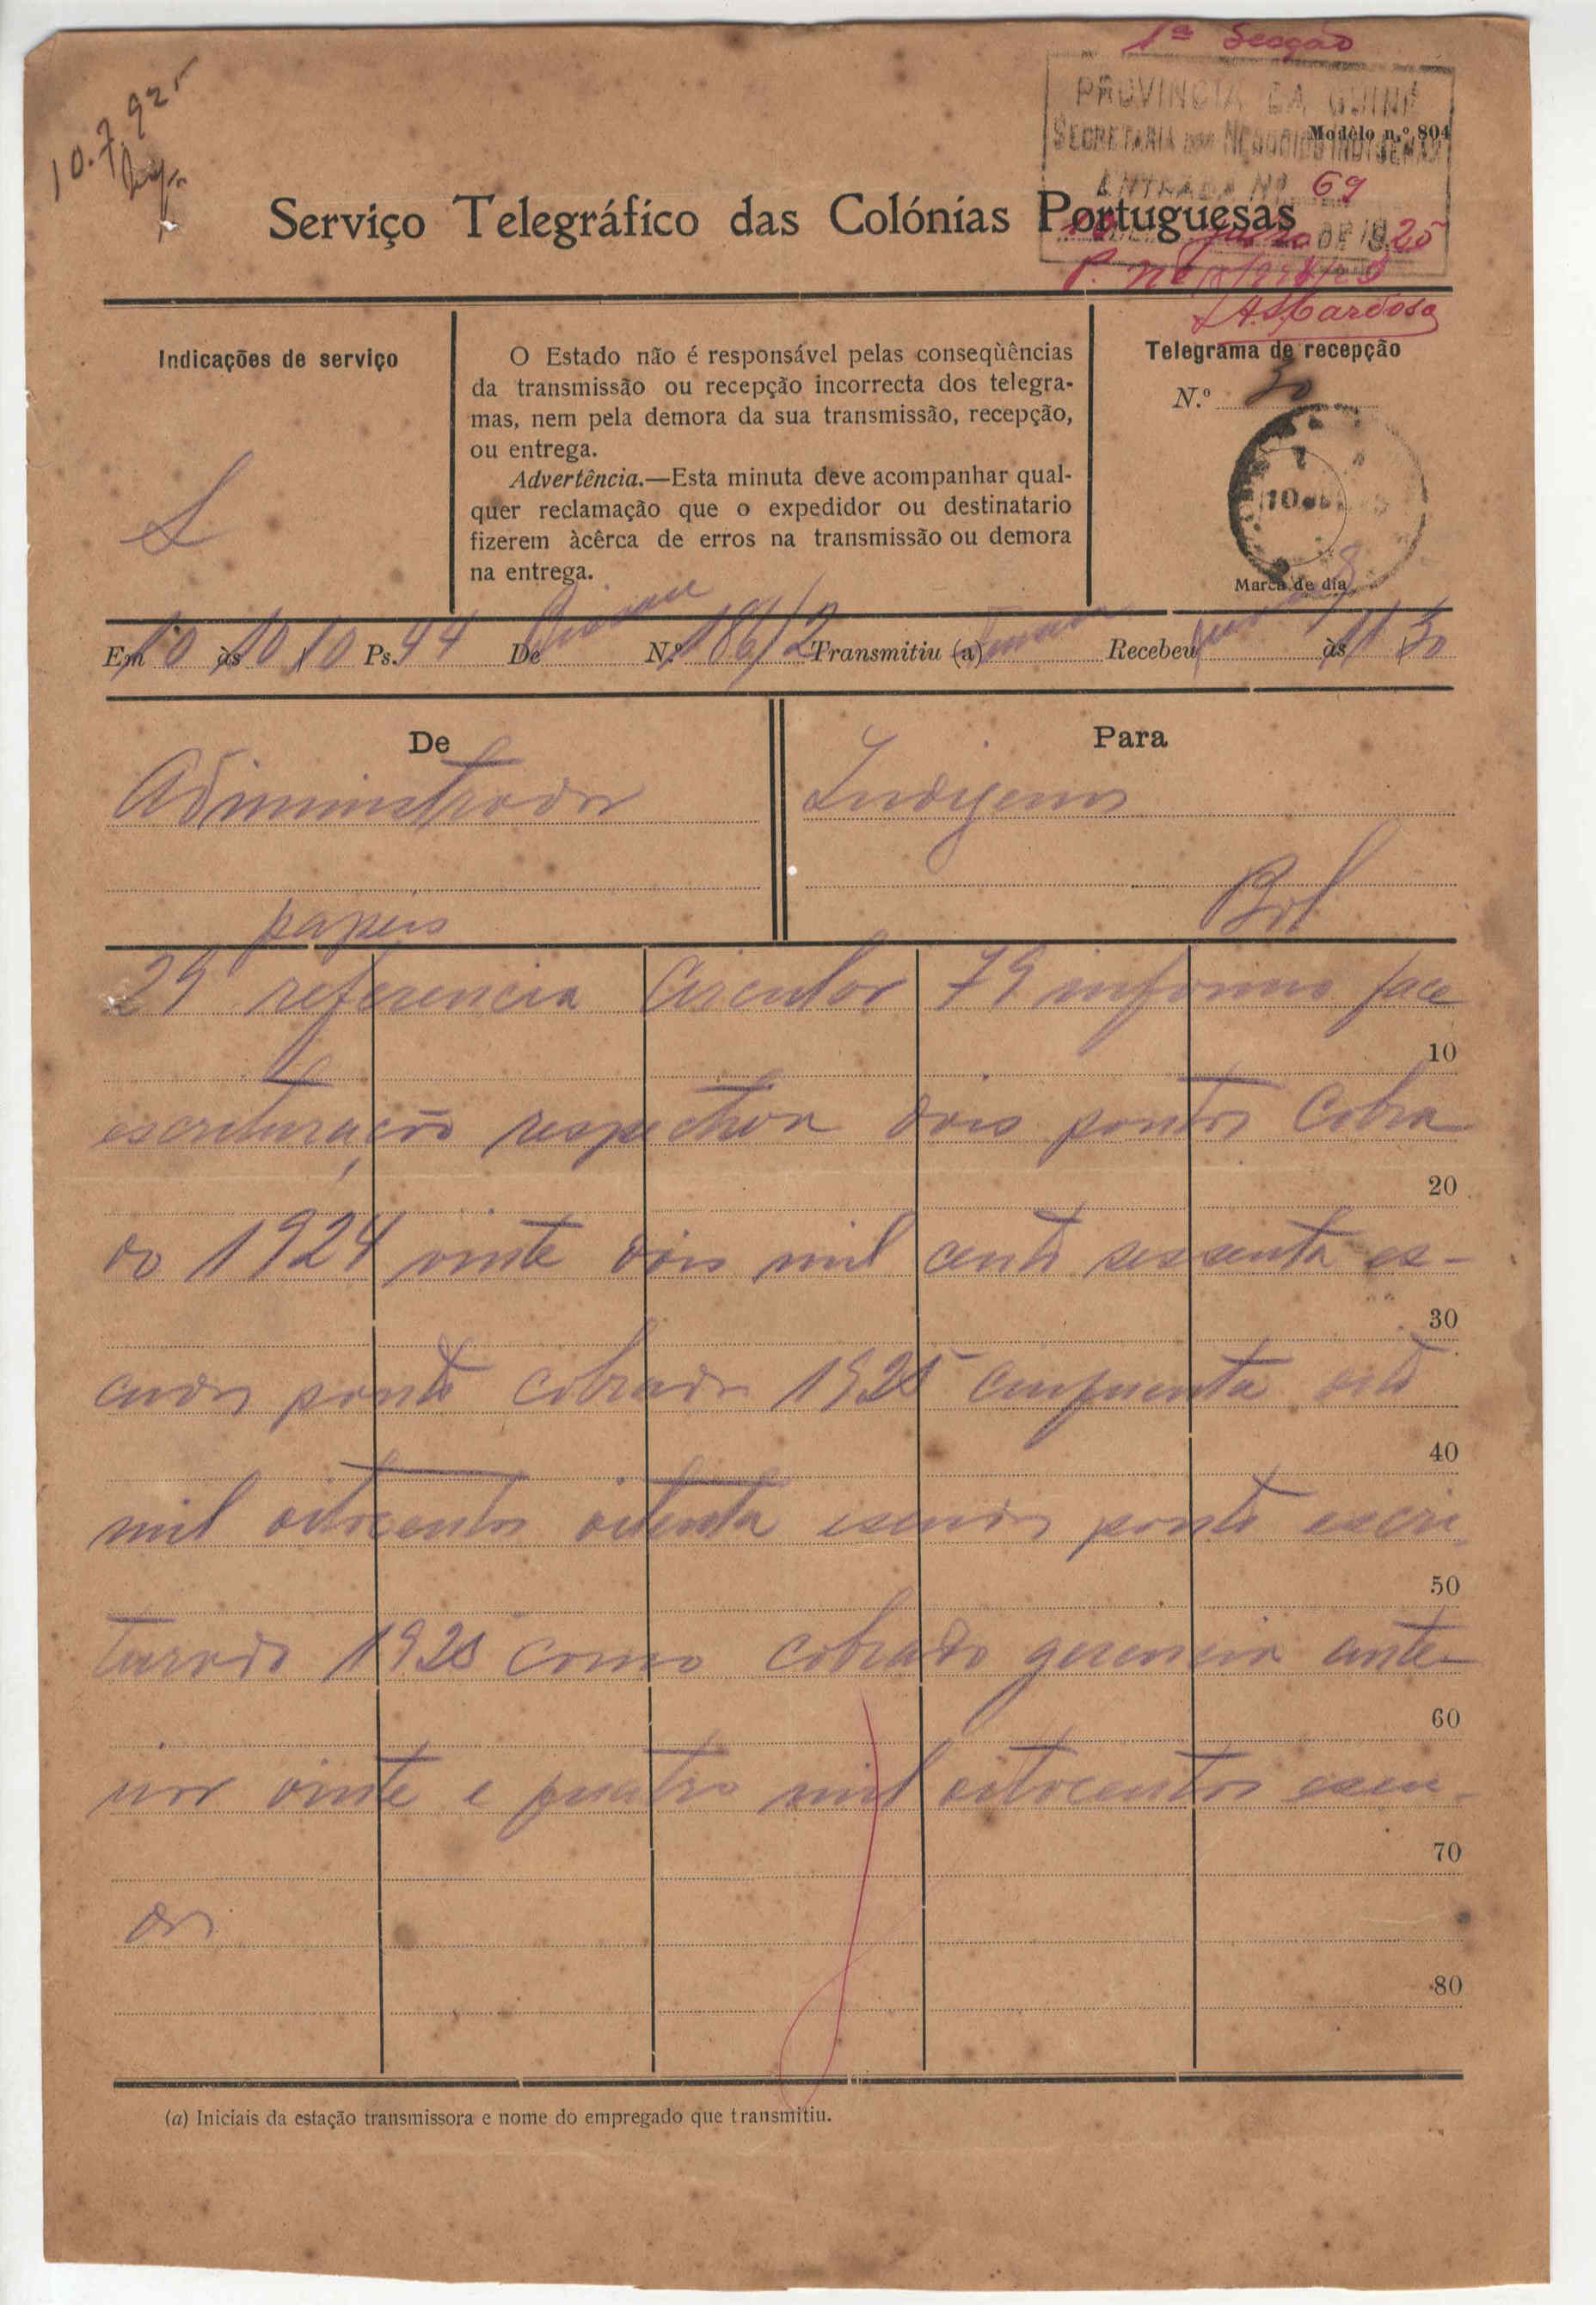 1ª Secção
10.7.925
PROVINCIA DA GUINÉ
Modêlo n.º 804
SECRETARIA DOS NEGOCIOS INDIGENAS
ENTRADA Nº 69
Serviço Telegráfico das Colónias Portuguesas
10 DE Julho DE 1925
A. S. Cardoso
Indicações de serviço
O Estado não é responsável pelas conseqùências
da transmissão ou recepção incorrecta dos telegra-
mas, nem pela demora da sua transmissão, recepção,
ou entrega.
Advertência.—Esta minuta deve acompanhar qual-
quer reclamação que o expedidor ou destinatario
fizerem àcêrca de erros na transmissão ou demora
na entrega.
Telegrama de recepção
N.º 30
Marca de dia
Em 10 às 10 10 Ps. 44 De N.º 186/2 Transmitiu (a) Recebeu às 11 30
De
Administrador
Para
Indigenas
Bol
papeis
29 referencia Circular 79 informo face
10
escrituração respectiva dois pontos Cobra
20
do 1924 vinte dois mil cento sessenta es-
30
cudos ponto cobrado 1925 cinquenta oito
40
mil oitocentos oitenta escudos ponto escri
50
turado 1925 como cobrado gerencia ante-
60
rior vinte e quatro mil oitocentos escu-
70
dos
80
(a) Iniciais da estação transmissora e nome do empregado que transmitiu.